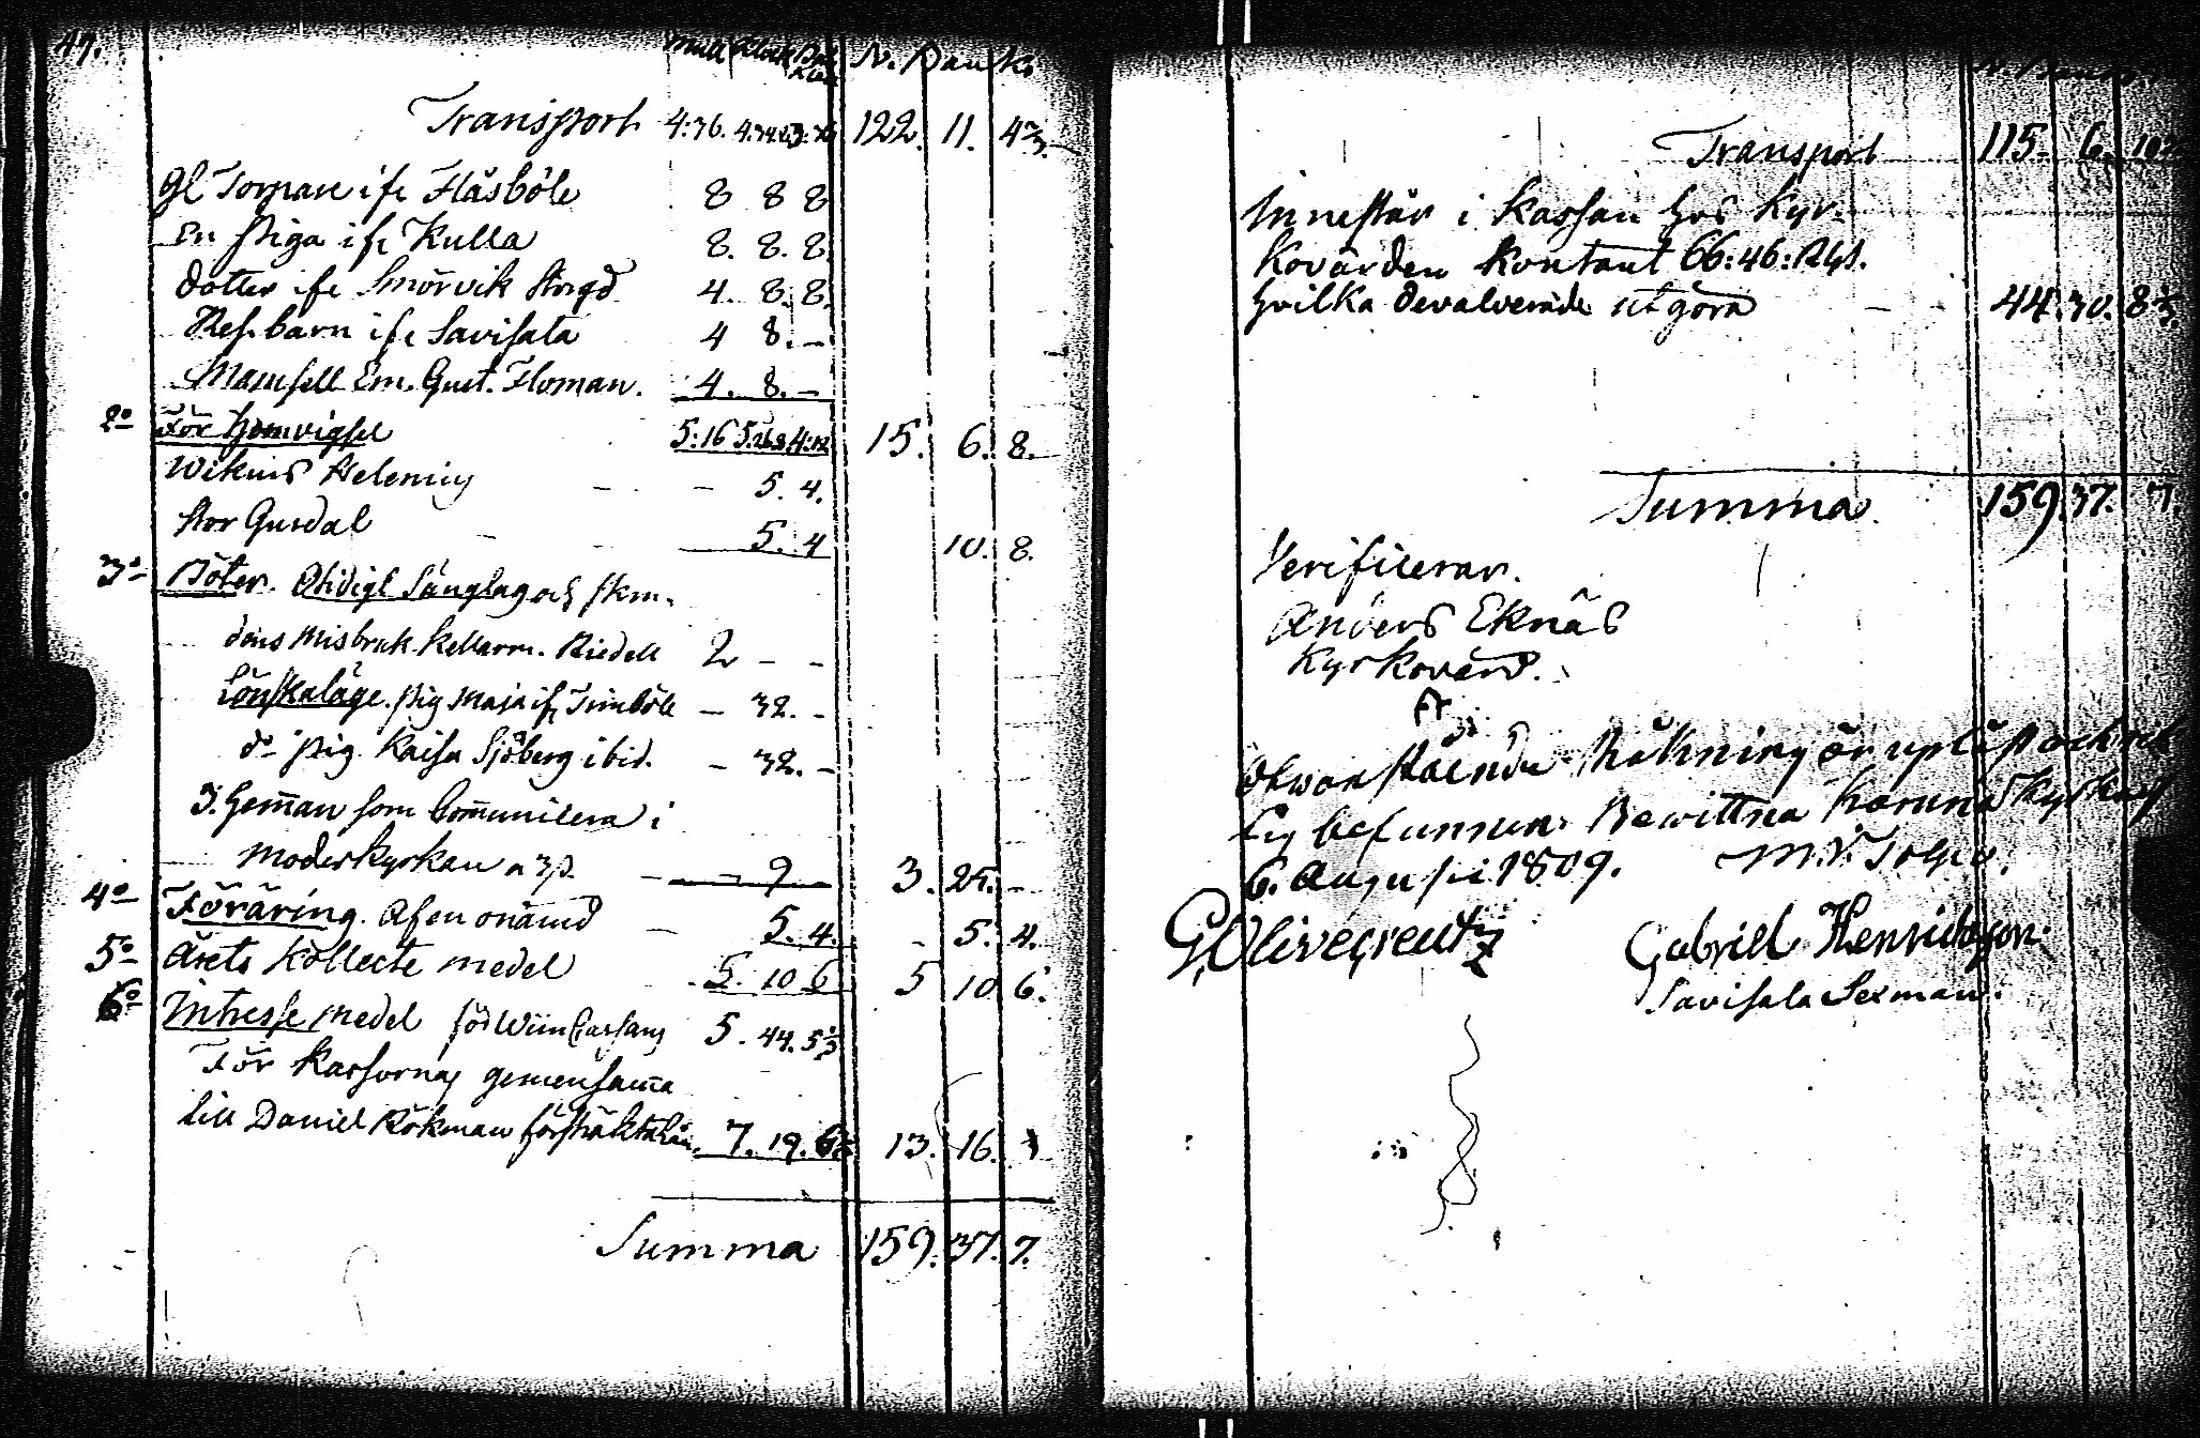 47.
Mull Klock Bår N. Banko
Kläd
Transport 4:36. 122. 11. 4 2/3.
gl Torpare ifr Flåsböle 8 8 8
En Piga ifr Kulla 8. 8. 8.
dotter ifr Smörvik Storgd 4. 8. 8.
Ref. barn ifr Savisala 4 8. -
Mamsell Em. Gust. Floman. 4. 8. -
2o För hemvigsel 5:16 4:12 15. 6. 8.
Wikms Heleming - - 5. 4.
Stor Gusdal - - 5. 4 10. 8.
3o Böter. Otidigt Sänglag och
dens misbruk Kellarm. Riedell 2 - -
Lönskaläge. Pig Maja ifr Trimböle - 32. -
do Pig. Kaisa Sjöberg ibid. - 32. -
3. som Communicera i
Moderkyrkan a 3p. - - 9 3. 25. -
4o Föräring. Af en onämd - 5. 4. - 5. 4.
5o Årets Kollecte medel 5. 10 6 5 10 6.
6o Intresse medel för 5. 44. 5 1/3
För Kassornas gemensama
till Daniel Rökman 7. 19. 13. 16. 1
Summa 159. 37. 7.
N. Banco
Transport 115. 6. 10
Innestår i Kassan hos Kyr-
kovärden Kontant 66:46: Rgs.
hvilka devalverade utgöra - - 44. 30. 8
Summa 159. 37. 7.
Verificerar.
Anders Eknäs
Kyrkovärd.
Att
Ofwanstående Räkning är upläst och rik
tig befunnen. Bewittna
6. Augusti 1809.
G. Olivecreutz Gabriel Henricksson
Savisala Sexman.